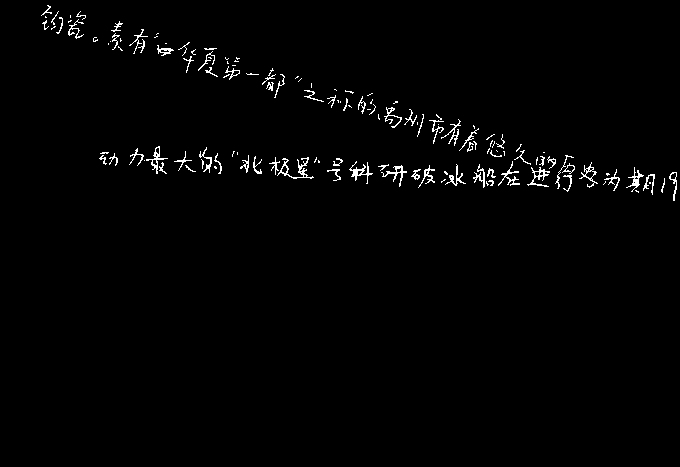 钧瓷。素有“华夏第一都”之称的禹州市有着悠久的历
动力最大的“北极星”号科研破冰船在进行为期19